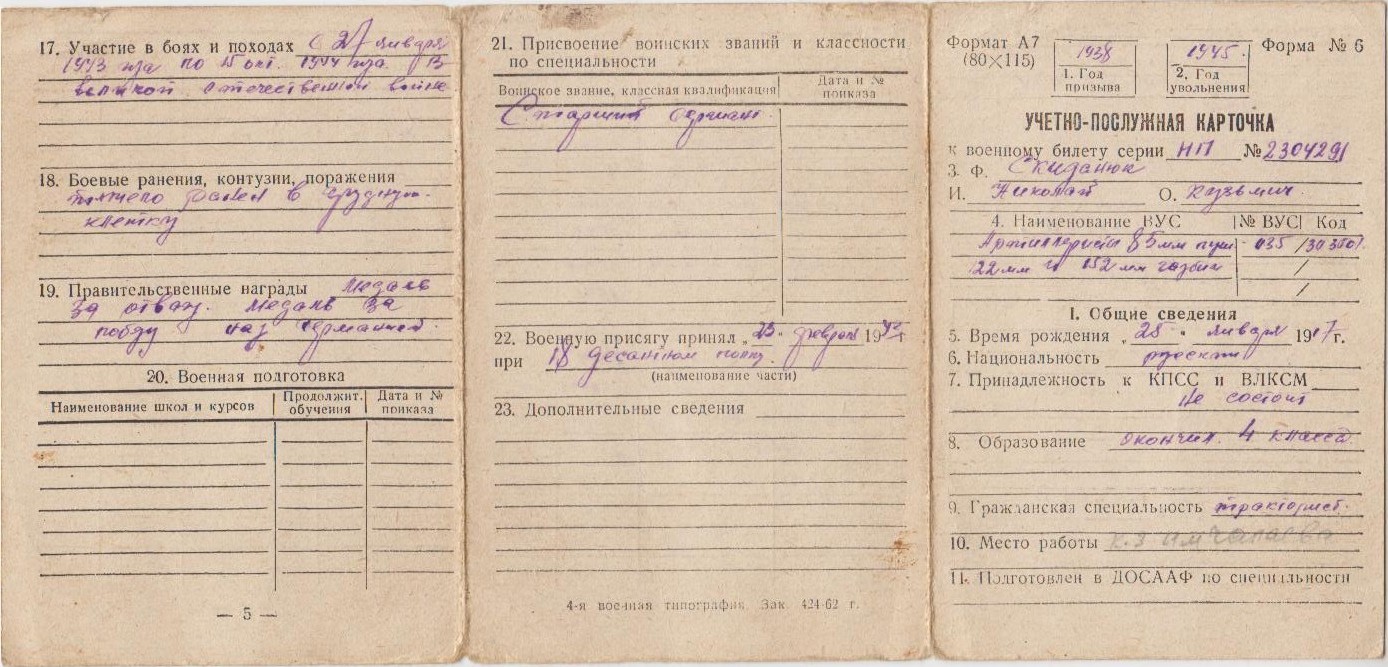 17. Участие в боях и походах с 27 января
1943 года по 15 окт. 1944 года. В
великой отечественной войне
18. Боевые ранения, контузии, поражения
тяжело ранен в грудную
клетку
19. Правительственные награды медаль
За отвагу. медаль За
победу над Германией.
20. Военная подготовка
Наименование школ и курсов
Продолжит. обучения
Дата и № приказа
— 5 —
21. Присвоение воинских званий и классности
по специальности
Воинское звание, классная квалификация
Дата и № приказа
Старший сержант.
22. Военную присягу принял „23" февраля 1943 г
при 18 десантном полку.
(наименование части)
23. Дополнительные сведения
4-я военная типография. Зак. 424-62 г.
Формат А7
(80×115)
1938
1. Год призыва
1945.
2. Год увольнения
Форма № 6
УЧЕТНО-ПОСЛУЖНАЯ КАРТОЧКА
к военному билету серии НП № 2304291
3. Ф. Скиданюк
И. Николай О. Кузьмич.
4. Наименование ВУС № ВУС Код
Артиллеристы 85 мм пуш 035
22 мм и 152 мм гаубиц
I. Общие сведения
5. Время рождения „25" января 1917 г.
6. Национальность русский
7. Принадлежность к КПСС и ВЛКСМ
Не состоит
8. Образование окончил. 4 класса.
9. Гражданская специальность тракторист.
10. Место работы к.з им Чапаева
11. Подготовлен в ДОСААФ по специальности